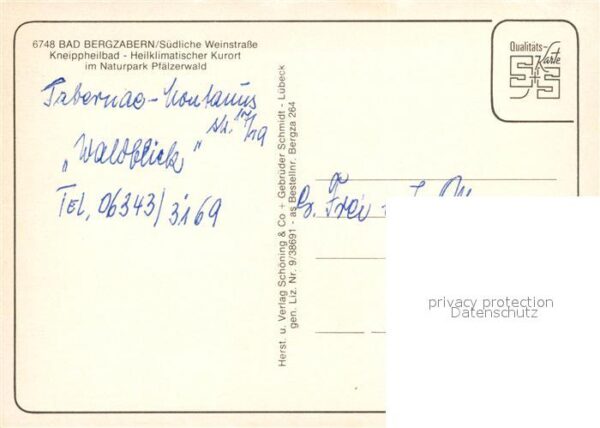 6748 BAD BERGZABERN/Südliche Weinstraße
Kneippheilbad - Heilklimatischer Kurort
im Naturpark Pfälzerwald
Qualitäts-
Karte
S+S
Tabernae-Montanus
str. 17/19
„Waldblick"
Tel, 06343/3169
Herst. u. Verlag Schöning & Co + Gebrüder Schmidt - Lübeck
gen. Liz. Nr. 9/38691 - as Bestellnr. Bergza 264
privacy protection
Datenschutz